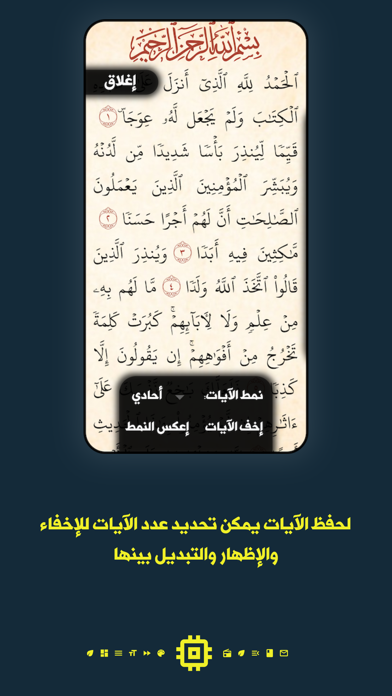 بِسْمِ ٱللَّهِ ٱلرَّحْمَٰنِ ٱلرَّحِيمِ
إغلاق
ٱلْحَمْدُ لِلَّهِ ٱلَّذِىٓ أَنزَلَ
ٱلْكِتَٰبَ وَلَمْ يَجْعَل لَّهُۥ عِوَجَاۜ ١
قَيِّمًا لِّيُنذِرَ بَأْسًا شَدِيدًا مِّن لَّدُنْهُ
وَيُبَشِّرَ ٱلْمُؤْمِنِينَ ٱلَّذِينَ يَعْمَلُونَ
ٱلصَّٰلِحَٰتِ أَنَّ لَهُمْ أَجْرًا حَسَنًا ٢
مَّٰكِثِينَ فِيهِ أَبَدًا ٣ وَيُنذِرَ ٱلَّذِينَ
قَالُوا۟ ٱتَّخَذَ ٱللَّهُ وَلَدًا ٤ مَّا لَهُم بِهِۦ
مِنْ عِلْمٍ وَلَا لِـَٔابَآئِهِمْ ۚ كَبُرَتْ كَلِمَةً
تَخْرُجُ مِنْ أَفْوَٰهِهِمْ ۚ إِن يَقُولُونَ إِلَّا
نمط الآيات: أحادي
إخف الآيات إعكس النمط
لحفظ الآيات يمكن تحديد عدد الآيات للإخفاء
والإظهار والتبديل بينها